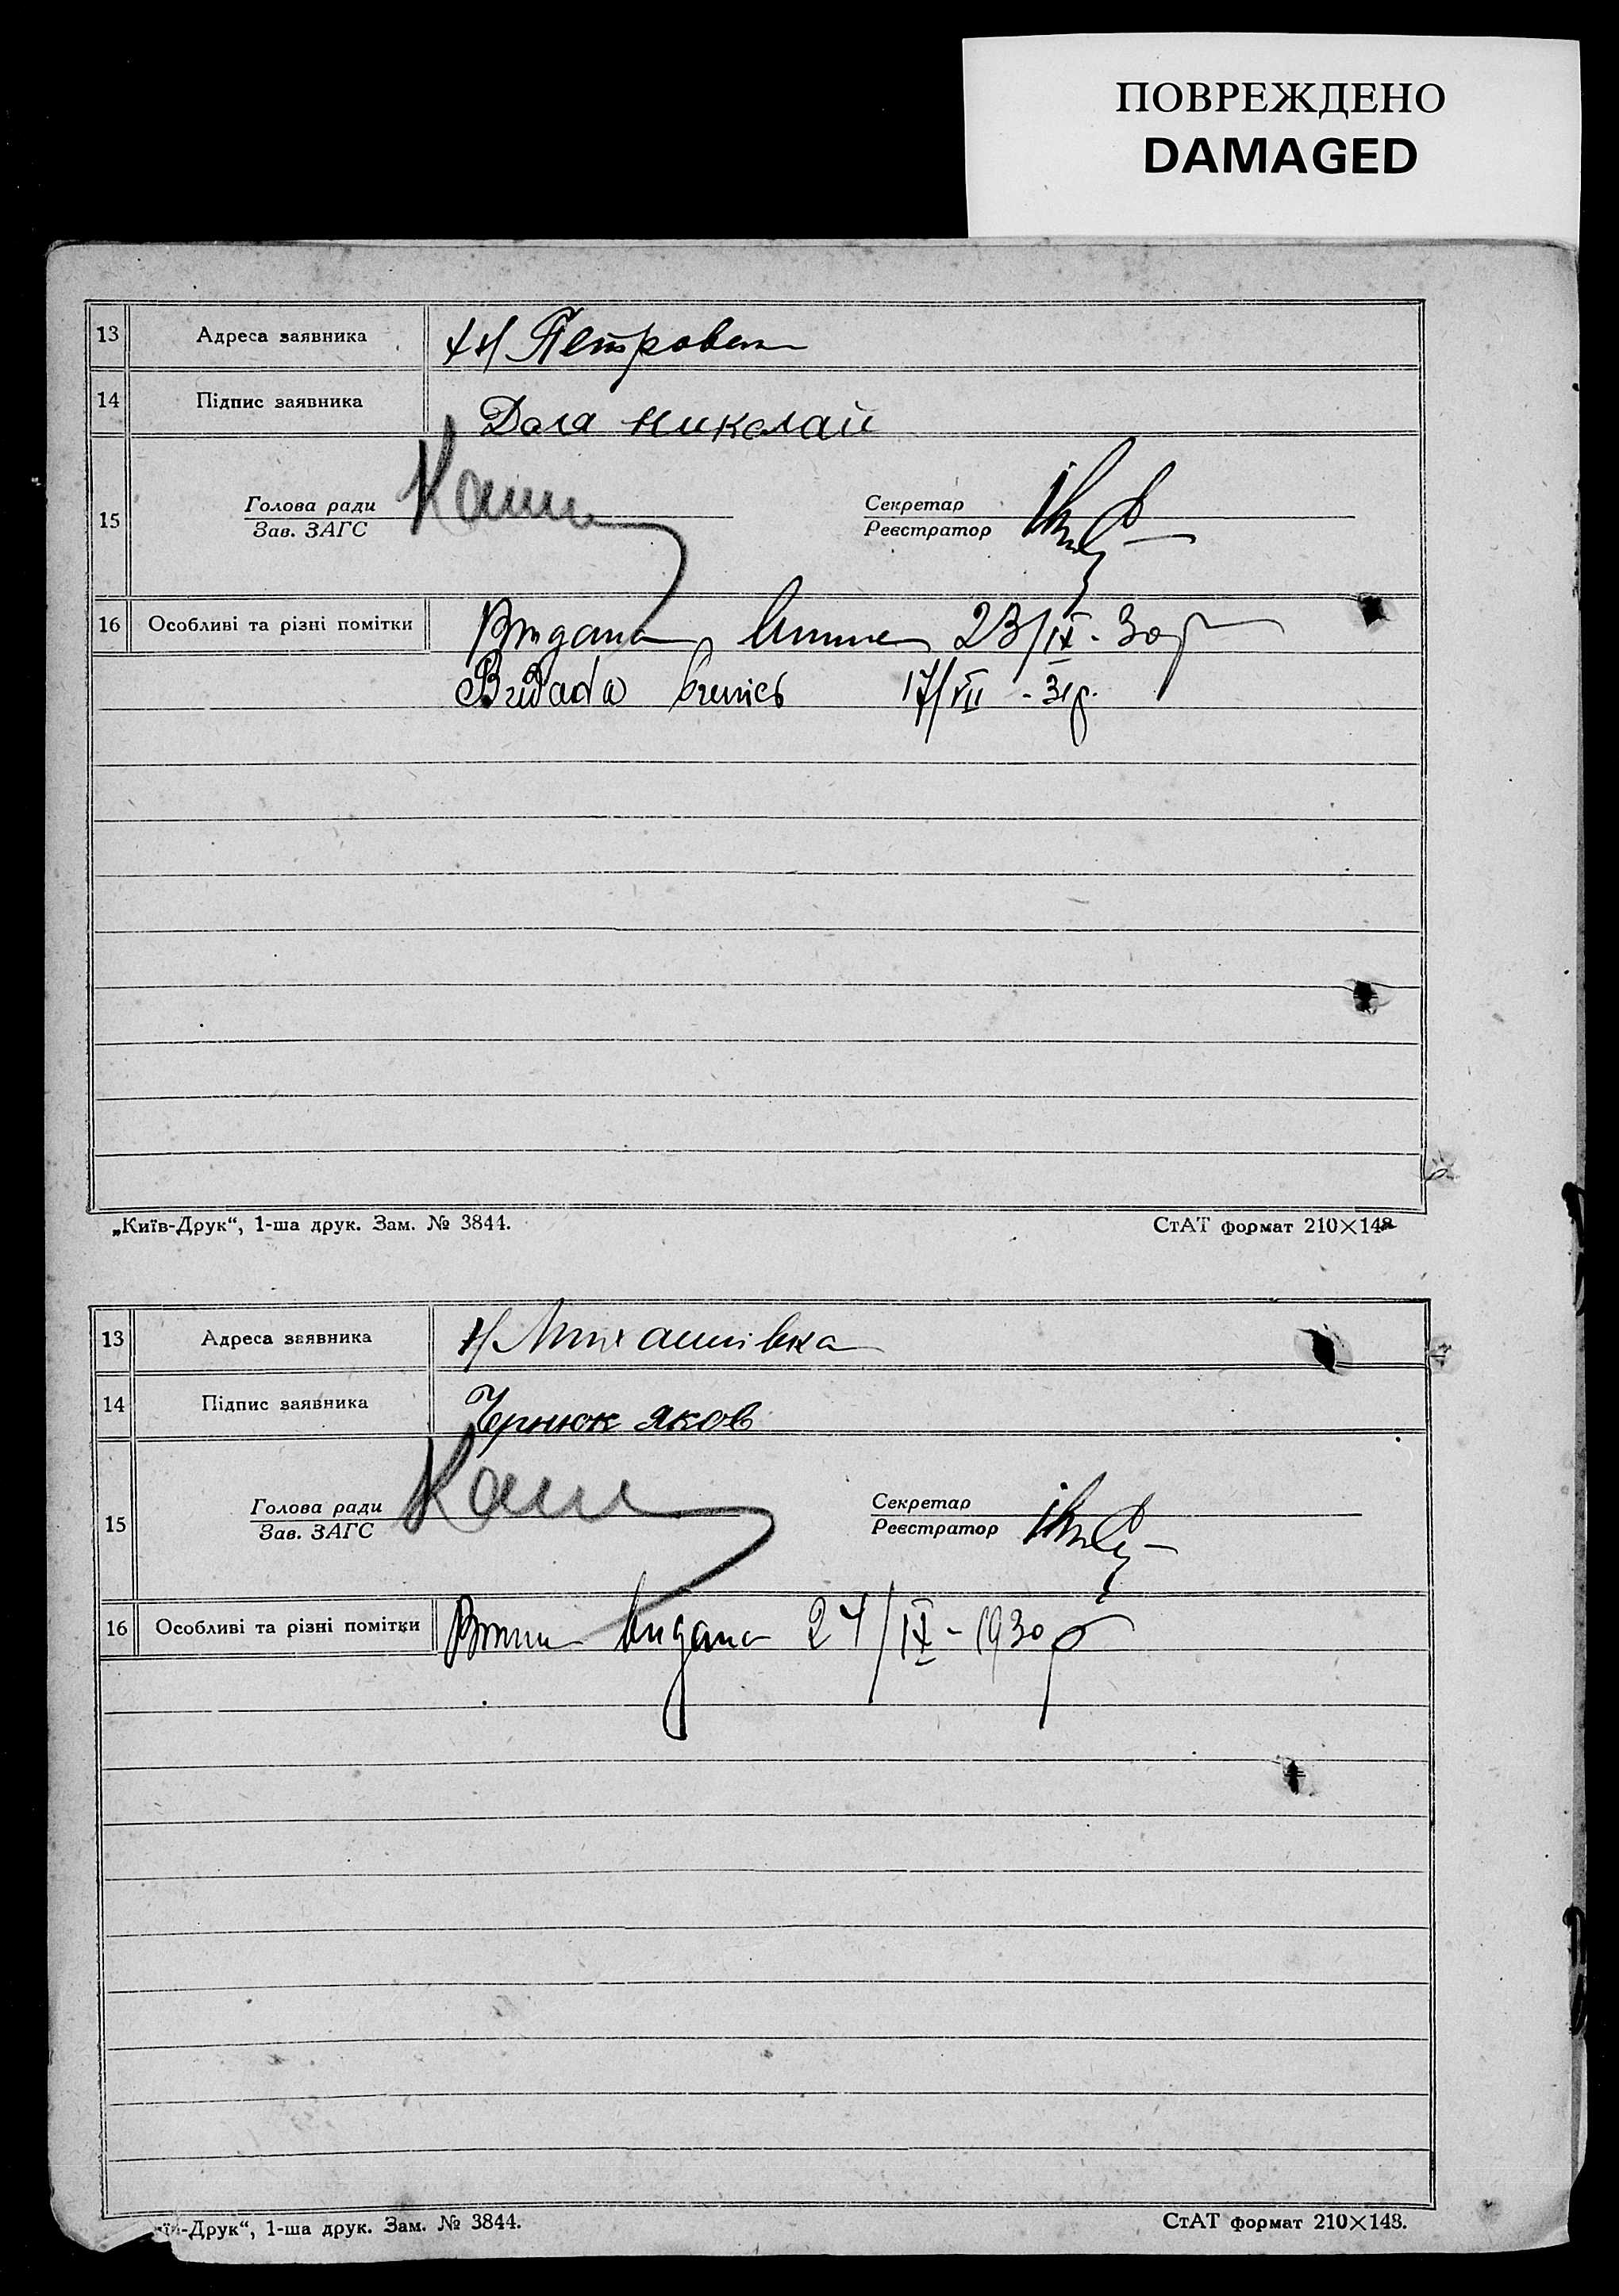 ПОВРЕЖДЕНО
DAMAGED
13 Адреса заявника Петровка
14 Підпис заявника Дога Николай
15 Голова ради
Зав. ЗАГС
Секретар
Реєстратор
16 Особливі та різні помітки Видана виписка 23/IX-30р
Видана випись 17/VII - 31р.
„Київ-Друк“, 1-ша друк. Зам. № 3844. СтАТ формат 210×148
13 Адреса заявника Михайлівка
14 Підпис заявника Чернюк Яков
15 Голова ради
Зав. ЗАГС
Секретар
Реєстратор
16 Особливі та різні помітки видана 24/IX-1930р
їв-Друк“, 1-ша друк. Зам. № 3844. СтАТ формат 210×148.